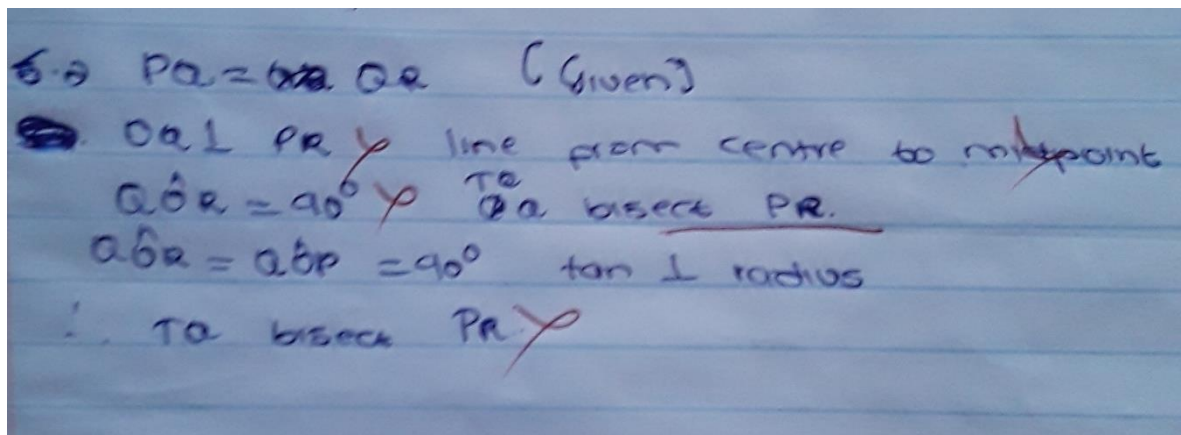 PQ = QR (Given)
OQ ⊥ PR line from centre to midpoint
QÔR = 90° TQ bisect PR.
QÔR = QÔP = 90° tan ⊥ radius
∴ TQ bisect PR